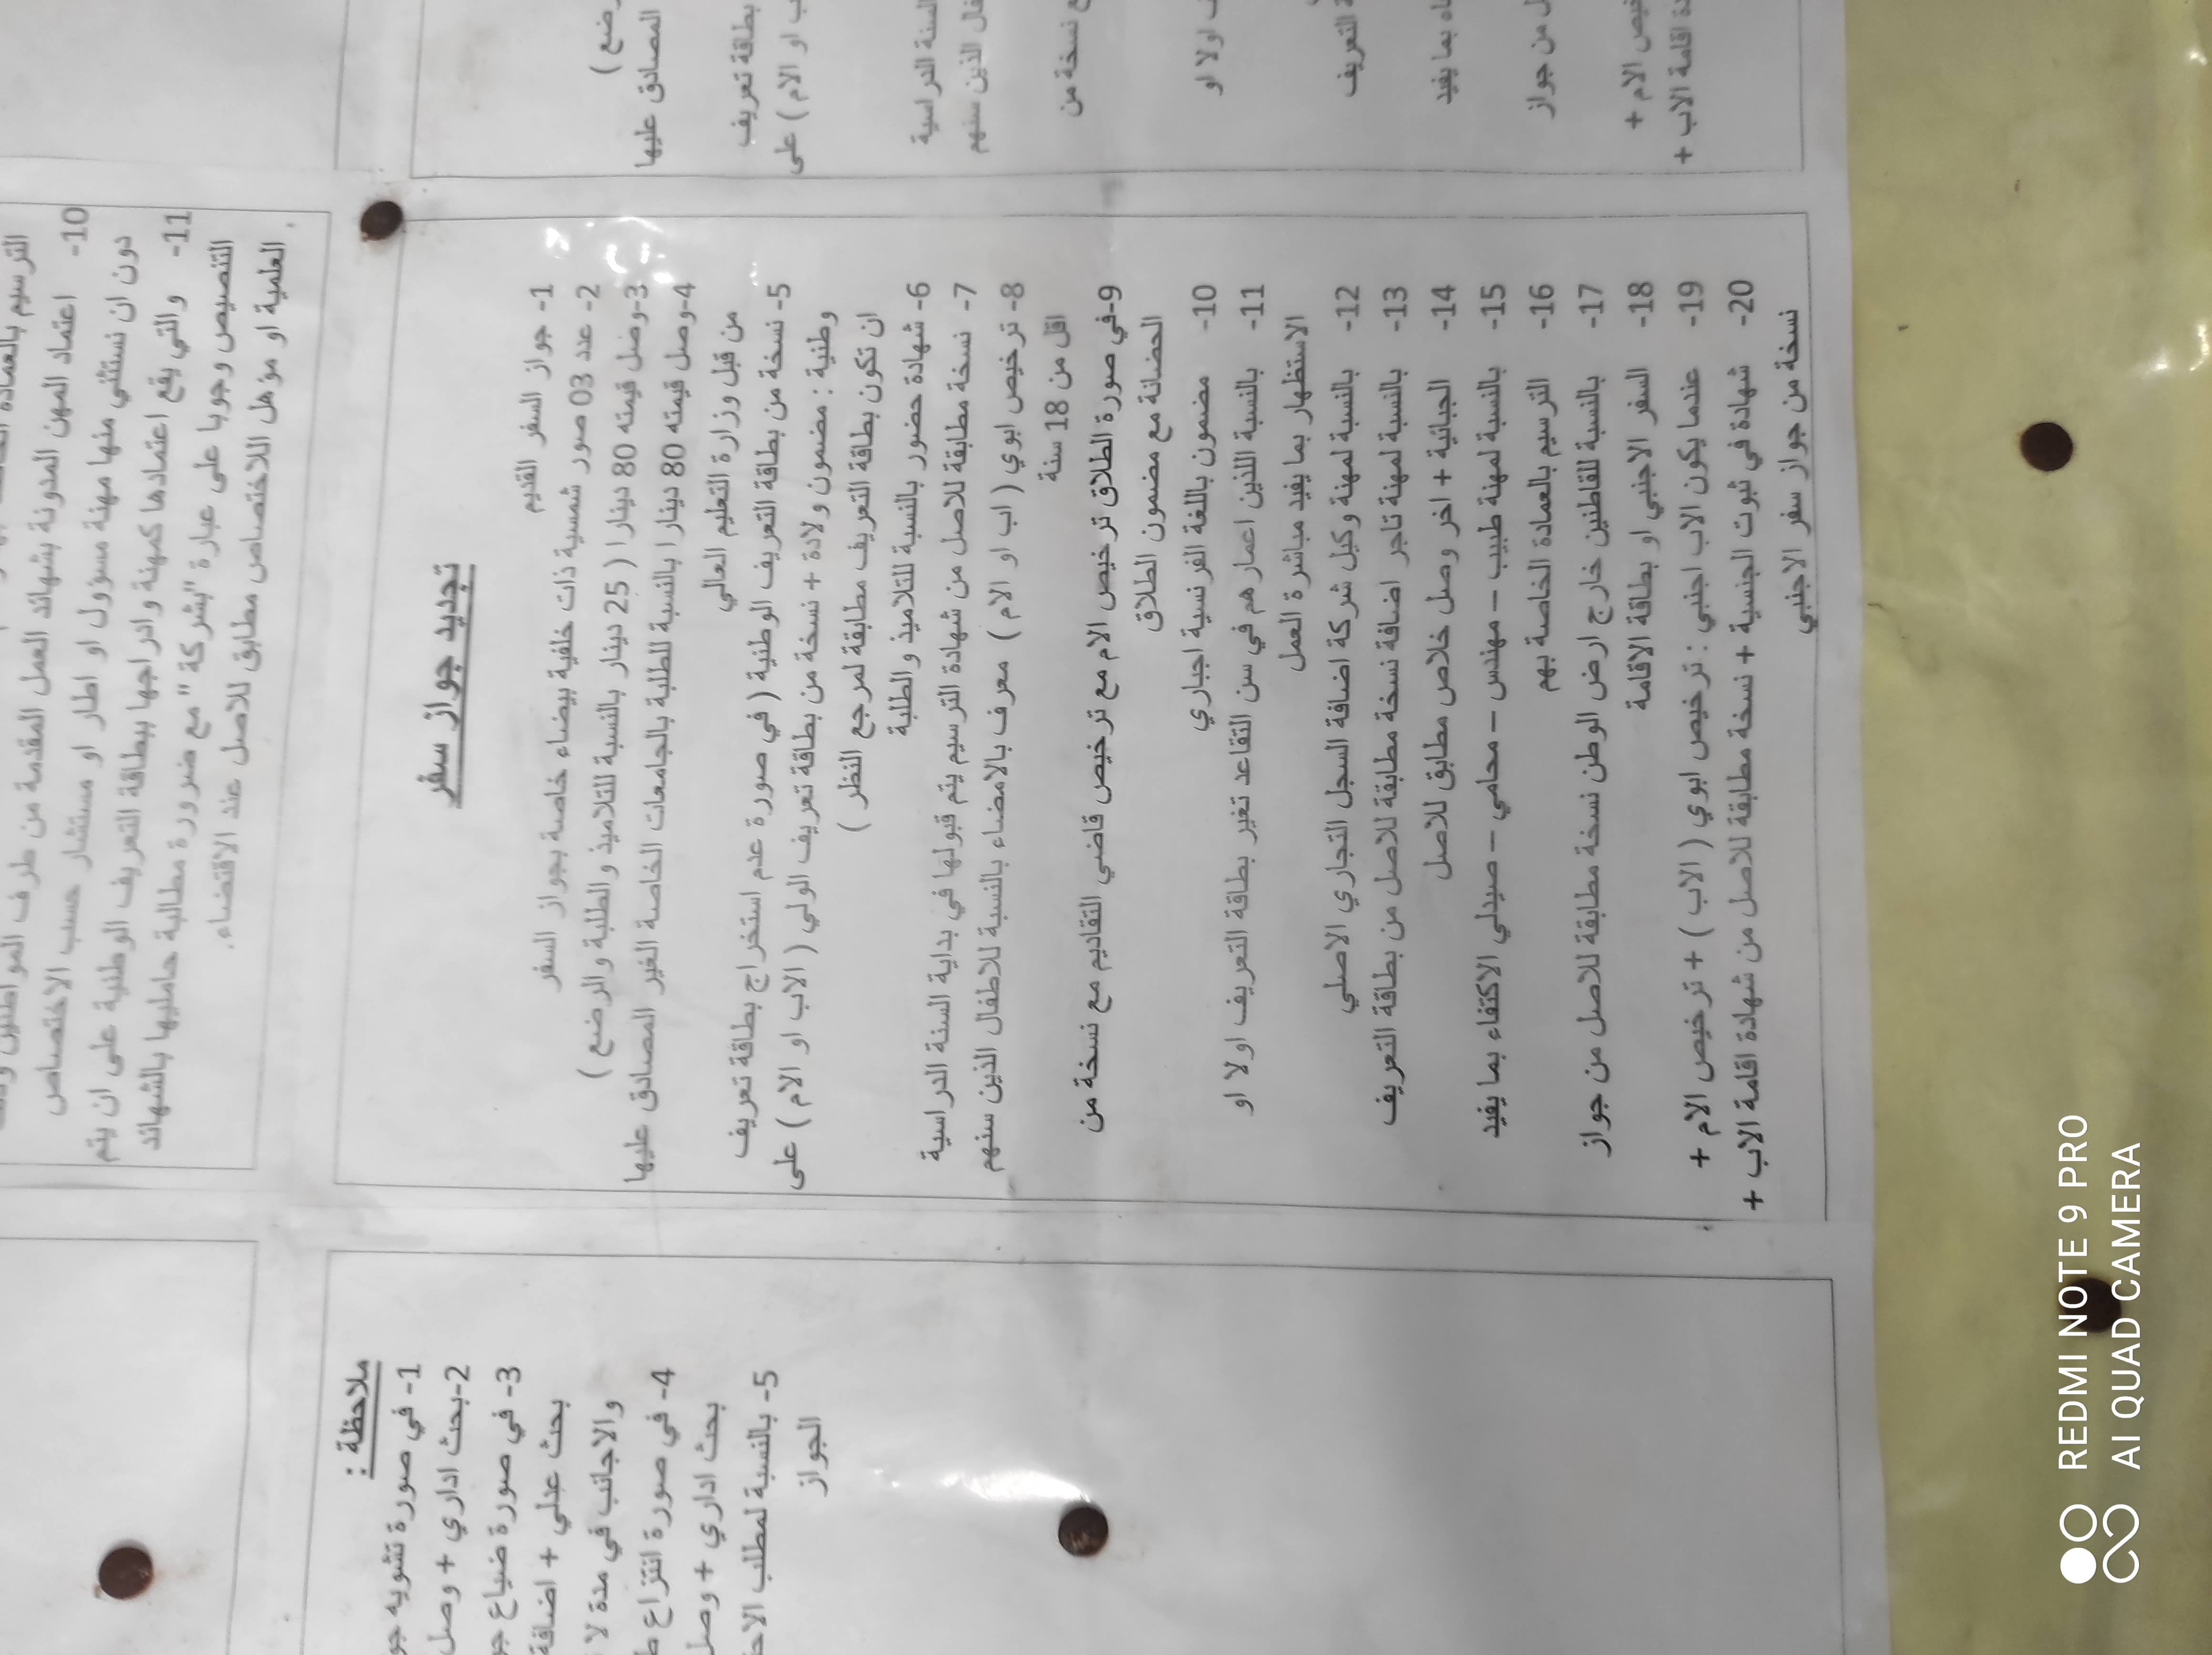 الترسيم بالعمادة
10- اعتماد المهن المدونة بشهائد العمل المقدمة من طرف المواطنين
دون ان نستثني منها مهنة مسؤول او اطار او مستشار حسب الاختصاص
11- والتي يقع اعتمادها كمهنة وادراجها ببطاقة التعريف الوطنية على ان يتم
التنصيص وجوبا على عبارة "بشركة" مع ضرورة مطالبة حامليها بالشهائد
العلمية او مؤهل الاختصاص مطابق للاصل عند الاقتضاء.
تجديد جواز سفر
1- جواز السفر القديم
2- عدد 03 صور شمسية ذات خلفية بيضاء خاصة بجواز السفر
3-وصل قيمته 80 دينارا ( 25 دينار بالنسبة للتلاميذ والطلبة والرضع )
4-وصل قيمته 80 دينارا بالنسبة للطلبة بالجامعات الخاصة الغير المصادق عليها
من قبل وزارة التعليم العالي
5- نسخة من بطاقة التعريف الوطنية ( في صورة عدم استخراج بطاقة تعريف
وطنية : مضمون ولادة + نسخة من بطاقة تعريف الولي ( الاب او الام ) على
ان تكون بطاقة التعريف مطابقة لمرجع النظر )
6- شهادة حضور بالنسبة للتلاميذ والطلبة
7- نسخة مطابقة للاصل من شهادة الترسيم يتم قبولها في بداية السنة الدراسية
8- ترخيص ابوي ( اب او الام ) معرف بالامضاء بالنسبة للاطفال الذين سنهم
اقل من 18 سنة
9-في صورة الطلاق ترخيص الام مع ترخيص قاضي التقاديم مع نسخة من
الحضانة مع مضمون الطلاق
10- مضمون باللغة الفرنسية اجباري
11- بالنسبة اللذين اعمارهم في سن التقاعد تغير بطاقة التعريف اولا او
الاستظهار بما يفيد مباشرة العمل
12- بالنسبة لمهنة وكيل شركة اضافة السجل التجاري الاصلي
13- بالنسبة لمهنة تاجر اضافة نسخة مطابقة للاصل من بطاقة التعريف
14- الجبائية + اخر وصل خلاص مطابق للاصل
15- بالنسبة لمهنة طبيب – مهندس – محامي – صيدلي الاكتفاء بما يفيد
16- الترسيم بالعمادة الخاصة بهم
17- بالنسبة للقاطنين خارج ارض الوطن نسخة مطابقة للاصل من جواز
18- السفر الاجنبي او بطاقة الاقامة
19- عندما يكون الاب اجنبي : ترخيص ابوي ( الاب ) + ترخيص الام +
20- شهادة في ثبوت الجنسية + نسخة مطابقة للاصل من شهادة اقامة الاب +
نسخة من جواز سفر الاجنبي
ملاحظة :
1- في صورة تشويه
2-بحث اداري + وصل
3- في صورة ضياع
بحث عدلي + اضافة
والاجانب في مدة لا
4- في صورة انتزاع
بحث اداري + وصل
5- بالنسبة لمطلب
الجواز
رضع )
المصادق عليها
بطاقة تعريف
ب او الام ) على
السنة الدراسية
الذين سنهم
نسخة من
اولا او
التعريف
بما يفيد
من جواز
الام +
اقامة الاب +
REDMI NOTE 9 PRO
AI QUAD CAMERA